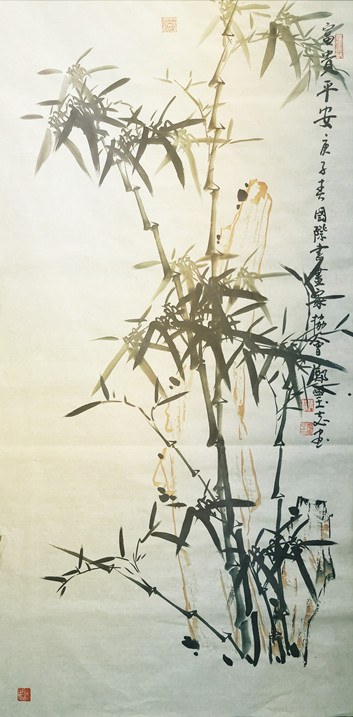 富貴平安庚子春國際書畫家協會鄭
志画